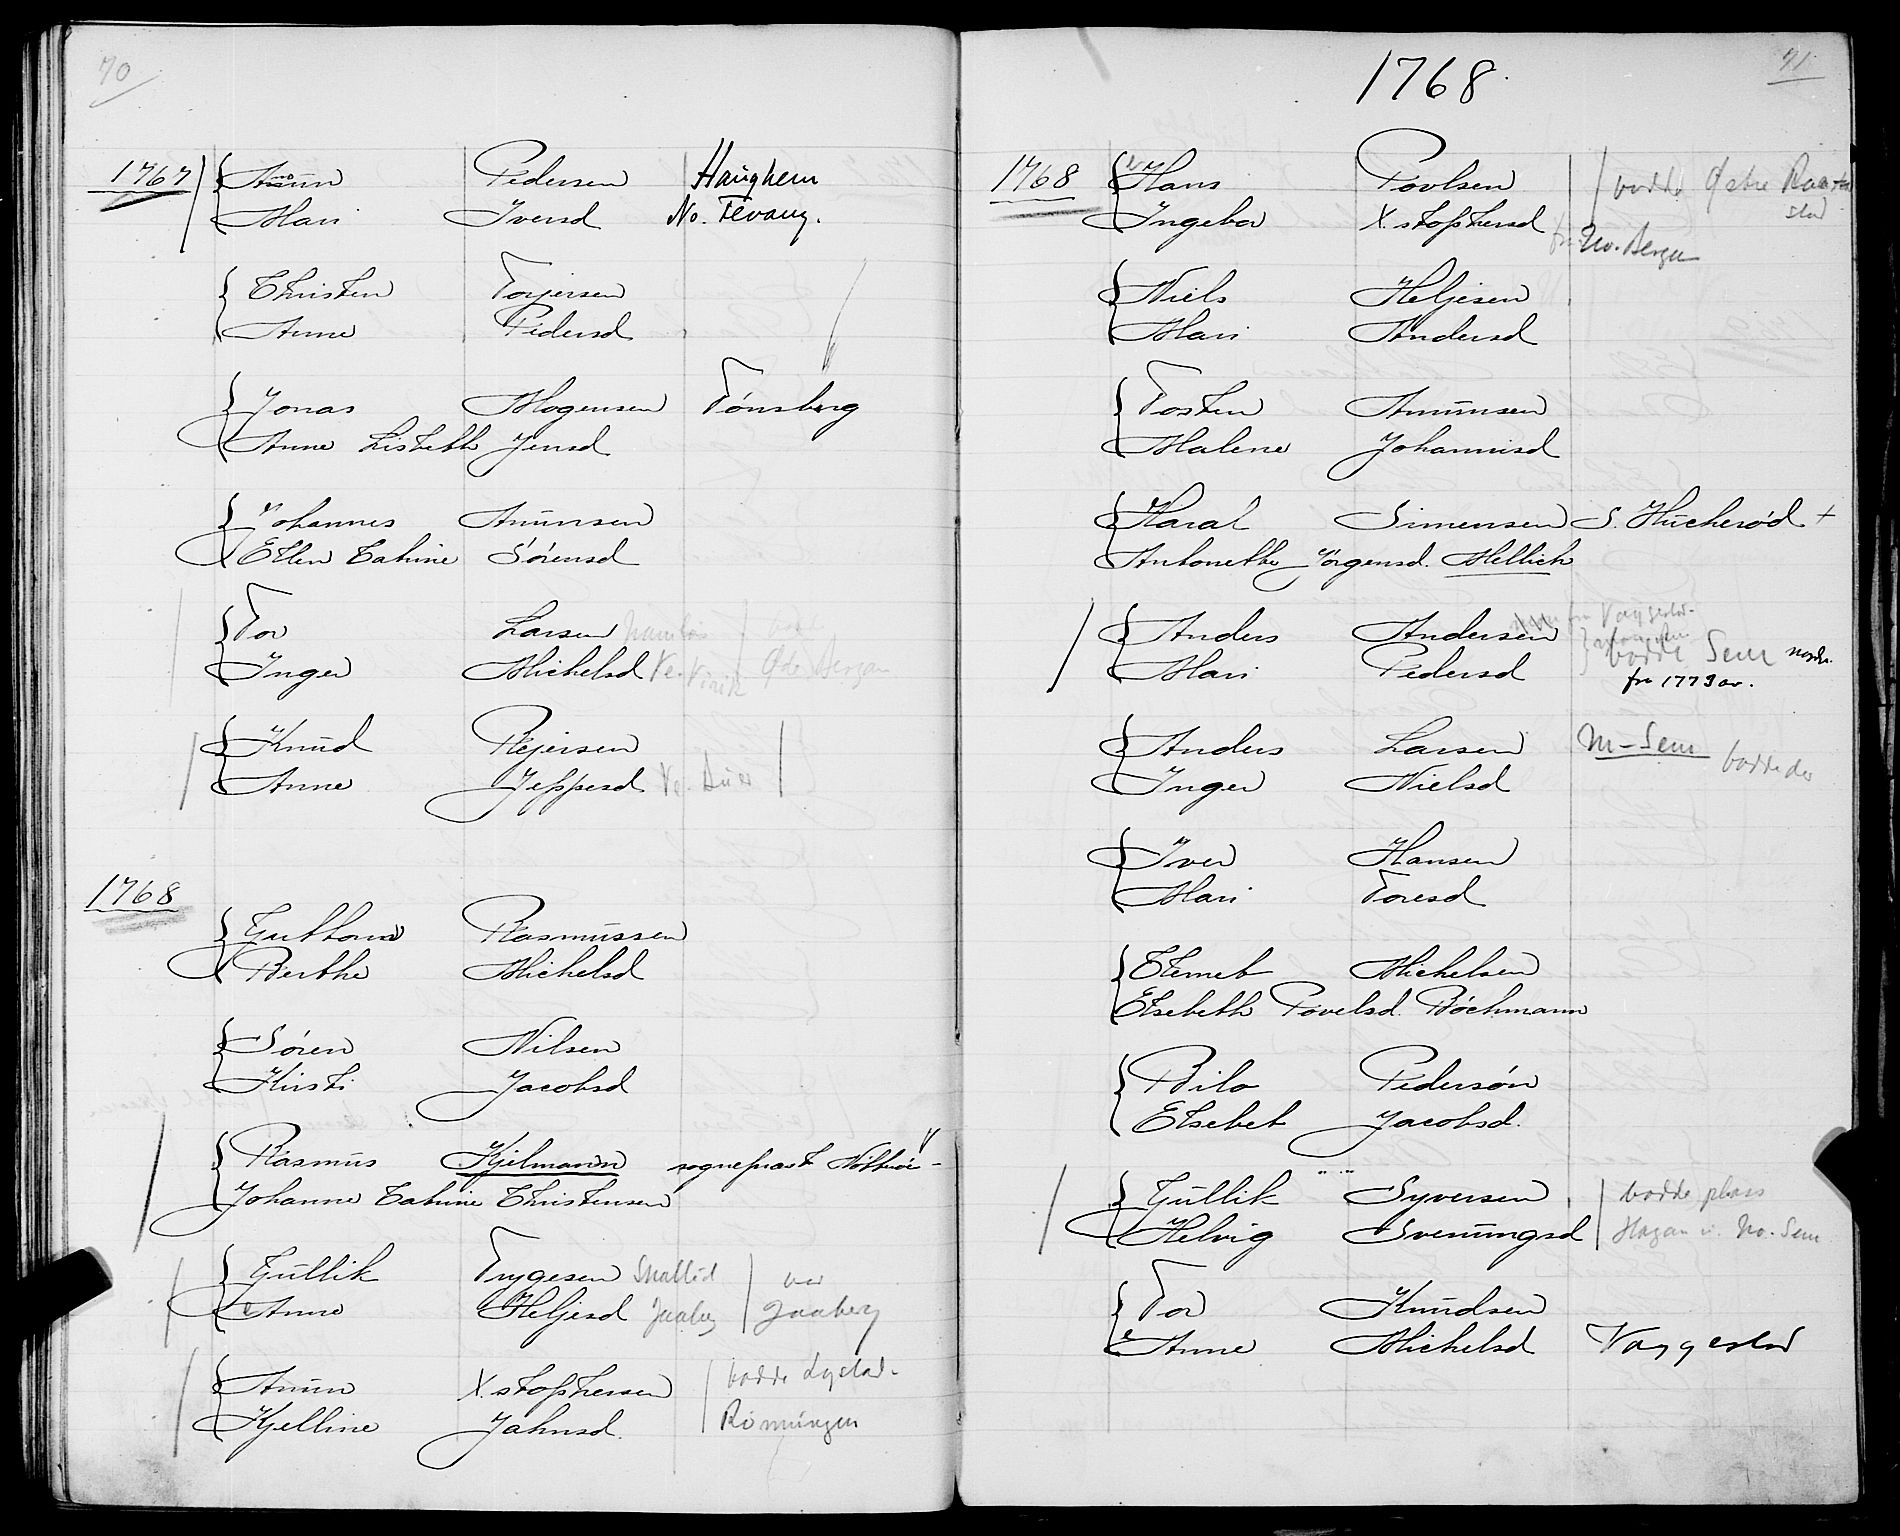 70
1767 Amun Pedersen Haughem
Mari Iversd No. Fevang.
Christen Torjersen
Anne Pedersd
Jonas Mogensen Tönsberg
Anne Lisbeth Jensd
Johannes Amunsen
Ellen Catrine Sörensd
Tor Larsen
Inger Michelsd Ve. Virik Øde Bergan
Knud Rejersen
Anne Jeppesd Ve.
1768
Gutthorm Rasmussen
Berthe Michelsd
Sören Nilsen
Kirsti Jacobsd
Rasmus Kjelmann sogneprest
Johanne Catrine Christensen
Gullik Trygesen
Anne Heljesd Jaaberg Jaaberg
Amun X.stophersen bodde Lystad-
Kjelline Jahnsd. Rönningen
71
1768
1768 Hans Povlsen bodde Østre Raastad
Ingebor X.stophersd
fra No. Bergan
Niels Heljesen
Mari Andersd
Tosten Amunsen
Malene Johannisd
Haral Simensen S. Hucheröd +
Antonette Jörgensd. Mellich
Anders Andersen fra Vaggestad.
Mari Pedersd bodde Sem nordre
fra 1773 av.
Anders Larsen M-Sem
Inger Nielsd bodde der
Iver Hansen
Mari Toresd
Clemet Michelsen
Elsebeth Povelsd. Böchmann
Bilo Pedersön
Elsebet Jacobsd.
Gullik Syversen bodde plass
Helvig Svenungsd Hagan u. No. Sem
Tor Knudsen
Anne Michelsd Vaggestad